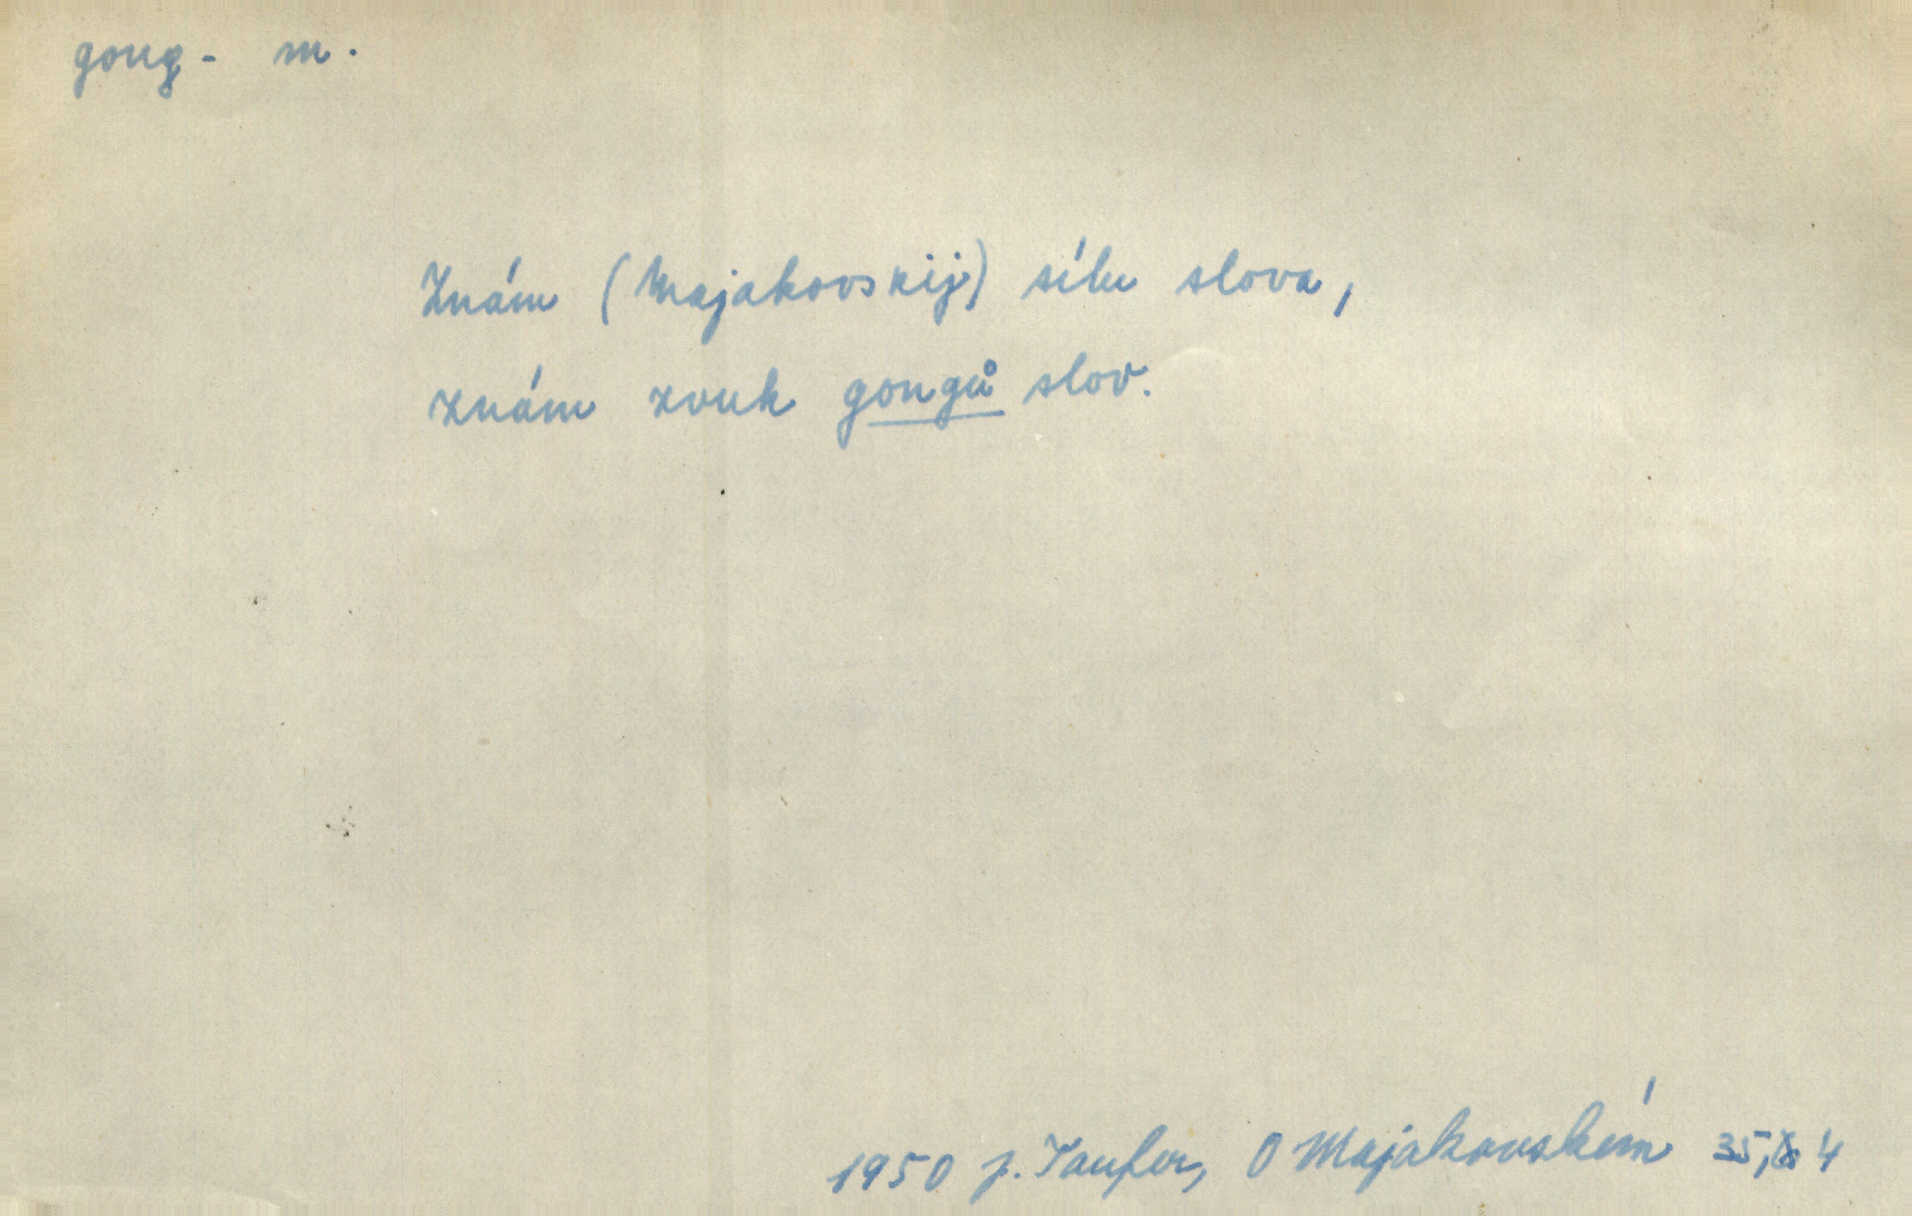 gong - m.
Znám (Majakovskij) sílu slova,
znám zvuk gongů slov.
1950 J. Taufer, O Majakovském 35, 4